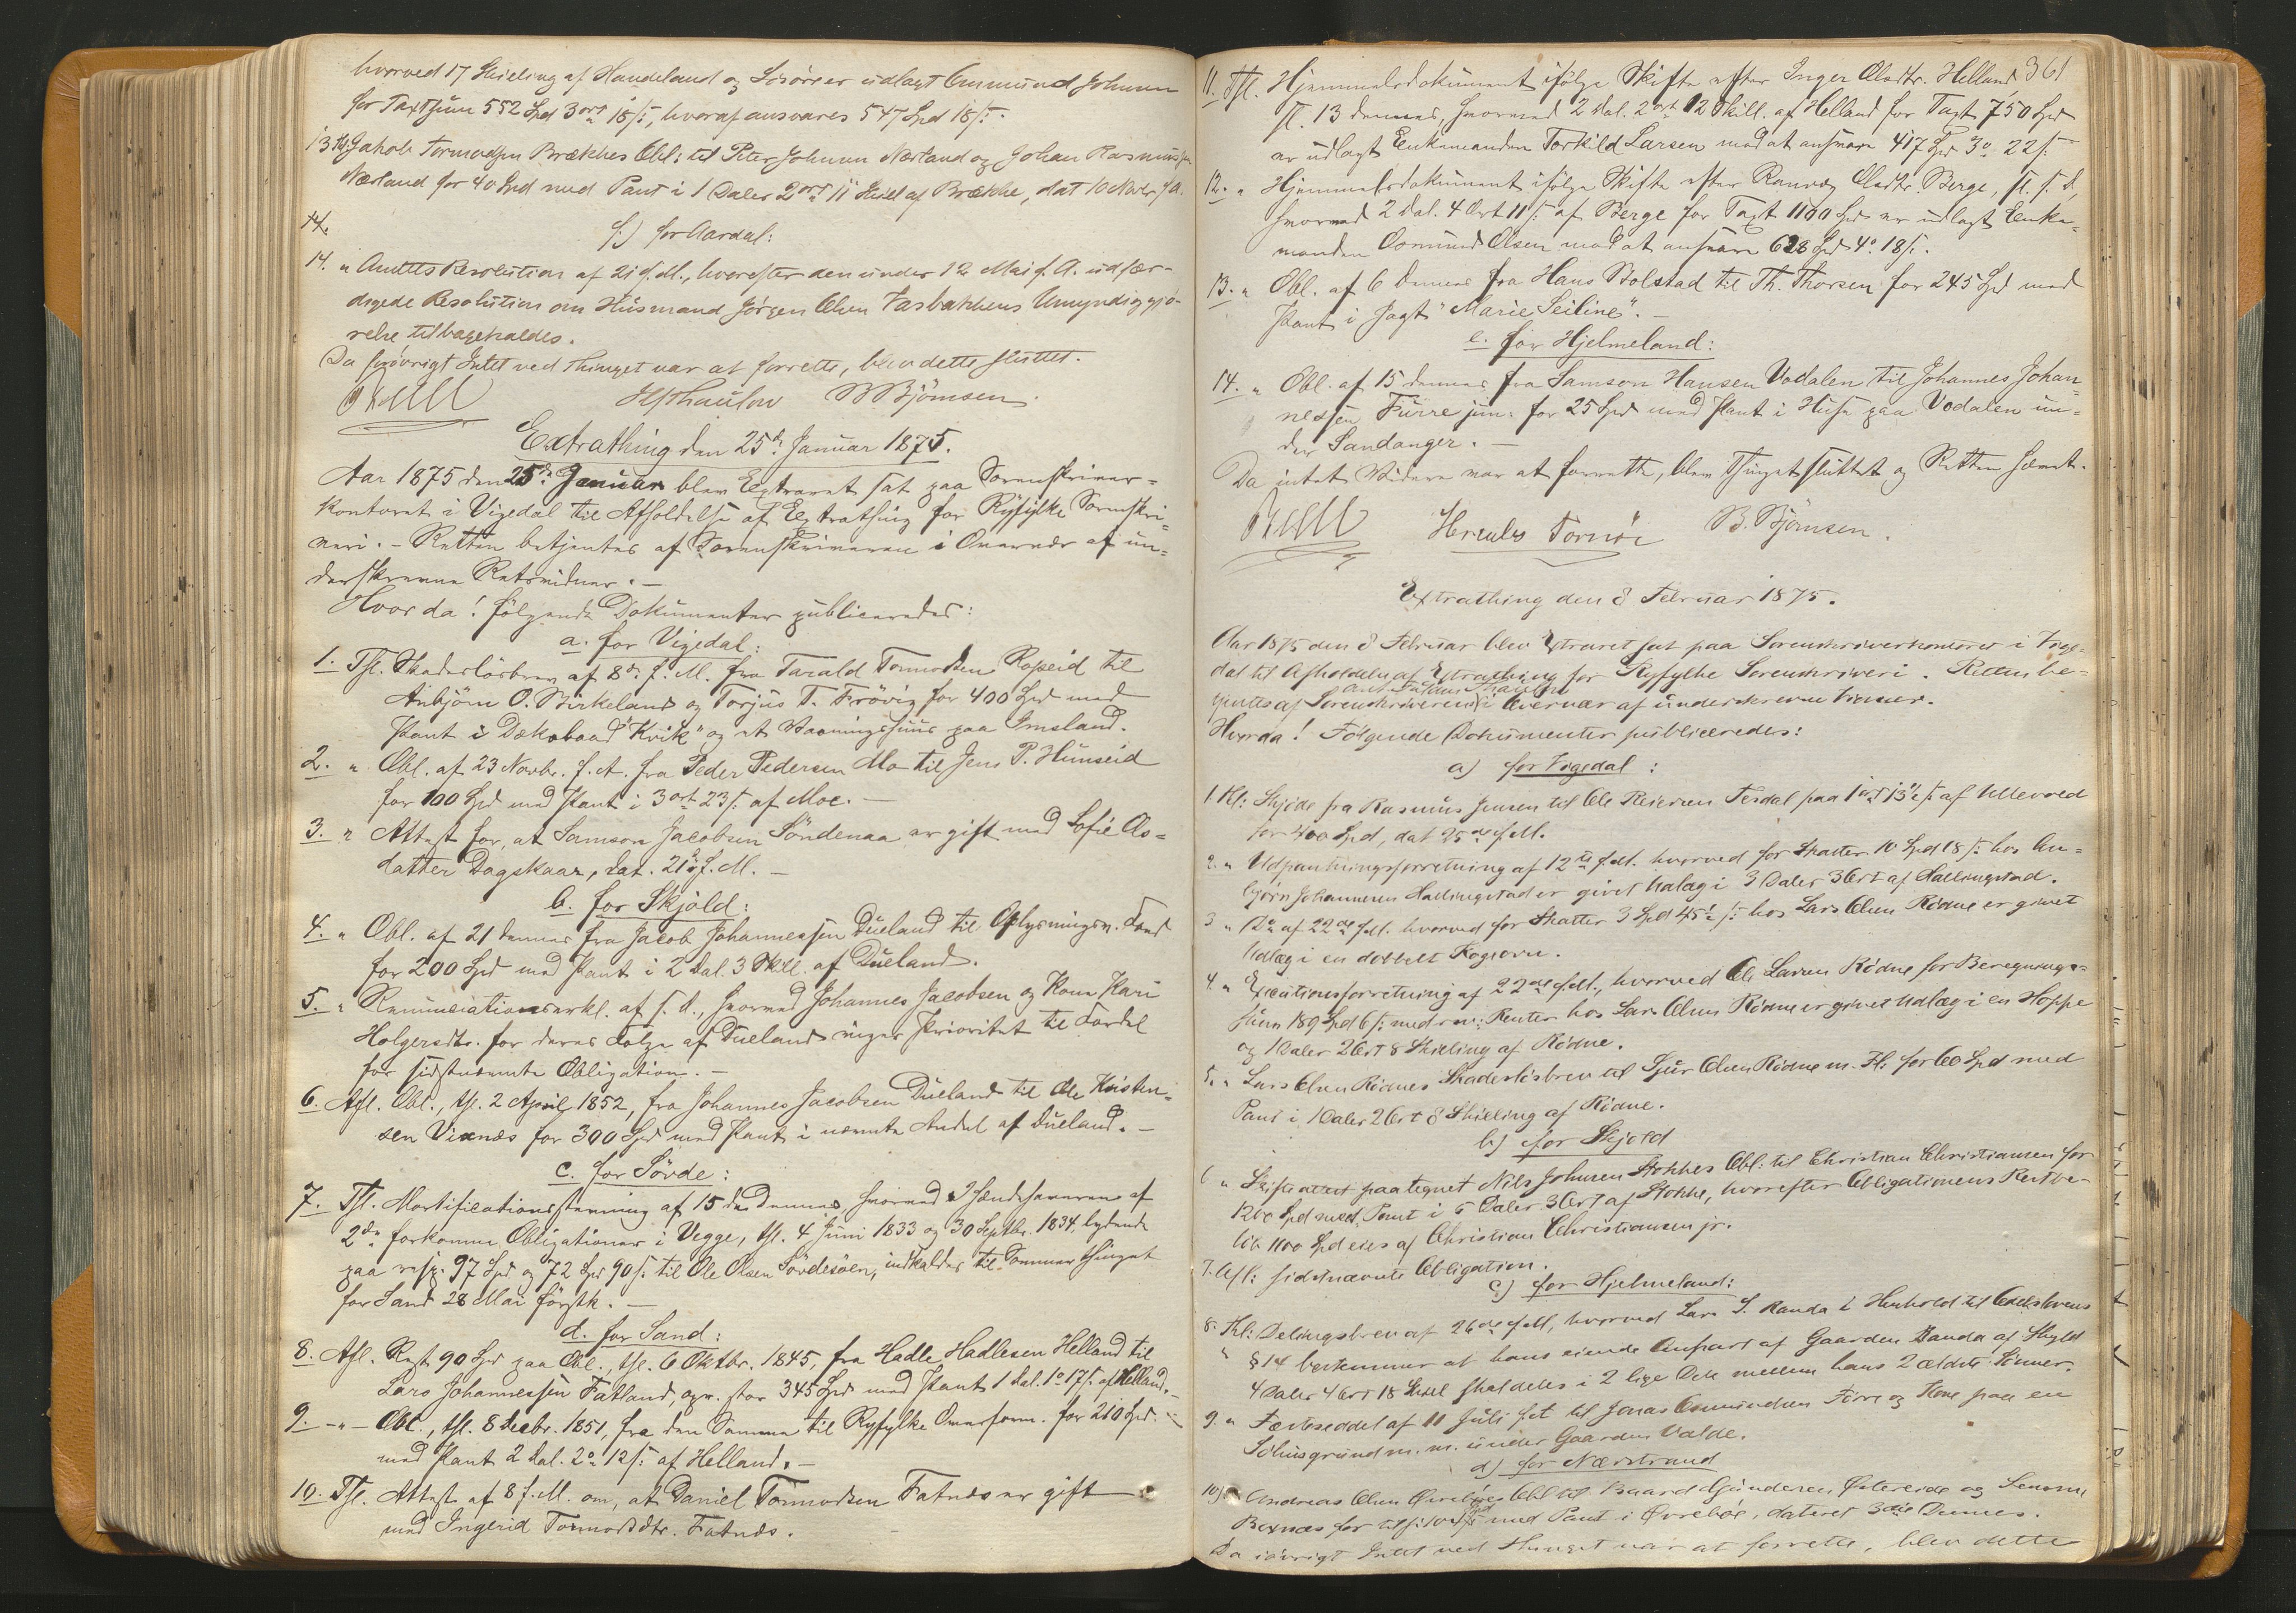 hvorved 17 Skilling af Handeland og Løsøre er udlagt Osmund Johnsen
for Taxtsum 552 Spd 3 ort 18 s:, hvoraf ansvares 547 Spd 18 s:.
13 Tl: Jakob Tormodsen Brækkes Obl: til Peter Johnsen Nærland og Johan Rasmussen
Nærland for 40 Spd med Pant i 1 Daler 2 ort 11 Skill af Brække, dat 10 Novbr. f. A.
14.
f.) for Aardal:
14. " Amtets Resolution af 21 f. M., hvorefter den under 12 Mai f. A. udfær-
digede Resolution om Husmand Jørgen Olsen Vasbakkens Umyndiggjø-
relse tilbagekaldes.
Da forøvrigt Intet ved Thinget var at forrette, blev dette sluttet.
H Thaulow B Bjömsen.
Extrathing den 25de Januar 1875.
Aar 1875 den 25de Januar blev Extraret sat paa Sorenskriver-
kontoret i Vigedal til Afholdelse af Extrathing for Ryfylke Sorenskri-
veri. - Retten betjentes af Sorenskriveren i Overvær af un-
derskrevne Retsvidner. -
Hvor da! følgende Dokumenter publiceredes:
a. for Vigedal:
1. Tgl. Skadesløsbrev af 8de f. M. fra Tarald Tormodsen Ropeid til
Anbjörn O. Birkeland og Torjus T. Frövig for 400 Spd med
Pant i Dæksbaad "Kvik" og et Vaaningshuus paa Imsland.
2. " Obl. af 23 Novbr. f. A. fra Peder Pedersen Mo til Jens P. Hunseid
for 100 Spd med Pant i 3 ort 23 s: af Moe. -
3. " Attest for, at Samson Jacobsen Söndenaa er gift med Sofie As-
datter Dagskaar, dat. 21de f. M. -
b. for Skjold:
4. " Obl. af 21 dennes fra Jacob Johannessen Dueland til Oplysningsv. Fond
for 200 Spd med Pant i 2 Dal. 3 Skill. af Dueland.
5. " Renunciationserkl. af s. d., hvorved Johannes Jacobsen og Kone Kari
Holgersdtr. for deres Folge af Dueland viger Prioritet til Fordel
for sidstnævnte Obligation. -
6. Afl. Obl., tgl. 2 April 1852, fra Johannes Jacobsen Dueland til Ole Kristen-
sen Viknæs for 300 Spd med Pant i nævnte Andel af Dueland. -
c. for Sövde:
7. Tgl. Mortificationsstevning af 15de Dennes, hvorved Ihændehaveren af
2de forkomne Obligationer i Vegge, tgl. 4 Juni 1833 og 30 Septbr. 1834, lydende
paa resp. 97 Spd og 72 Spd 90 s: til Ole Olsen Sövdesöen, indkaldes til Sommerthinget
for Sand 28 Mai förstk. -
d. for Sand:
8. Afl. Rest 90 Spd paa Obl., tgl. 6 Oktbr. 1845, fra Hadle Hadlesen Helland til
Lars Johannessen Fatland, opr. stor 345 Spd med Pant 1 Dal. 1 o 17 s. af Helland. -
9. - " - Obl., tgl. 8 Decbr. 1851, fra den Samme til Ryfylke Overform. for 210 Spd. -
med Pant 2 Dal. 2 o 12 s: af Helland. -
10. Tgl. Attest af 8 f. M. om, at Daniel Tormodsen Fatnæs er gift
med Ingerid Tormodsdtr. Fatnæs.
361
11. Tgl. Hjemmelsdokument ifølge Skifte efter Inger Olsdtr. Helland,
sl. 13 dennes, hvorved 2 Dal. 2 ort 12 Skill. af Helland for Taxt 750 Spd
er udlagt Enkemanden Torkild Larsen mod at ansvare 417 Spd 3 o 22 s:
12. " Hjemmelsdokument ifølge Skifte efter Ranveg Olsdtr. Berge, sl. s. d.,
hvorved 2 Dal. 4 Ort 11 s: af Berge for Taxt 1100 Spd er udlagt Enke-
manden Osmund Olsen mod at ansvare 628 Spd 4 o 18 s.
13. " Obl. af 6 dennes fra Hans Bolstad til Th. Thorsen for 245 Spd med
Pant i Jagt "Marie Seiline". -
e. for Hjelmeland:
14. " Obl. af 15 dennes fra Samson Hansen Vadalen til Johannes Johan-
nessen Furre jun. for 25 Spd med Pant i Huse paa Vodalen un-
der Sandanger. -
Da intet Videre var at forrette, blev Thinget sluttet og Retten hævet.
Hercules Tornöe B. Bjömsen.
Extrathing den 8 Februar 1875.
Aar 1875 den 8 Februar blev Extraret sat paa Sorenskriverkontoret i Vige-
dal til Afholdelse af Extrathing for Ryfylke Sorenskriveri. Retten be-
tjentes af Sorenskriveren i Overvær af underskrevne Vidner.
Hvorda! Følgende Dokumenter publiceredes:
a) for Vigedal:
1 Tl: Skjøde fra Rasmus Jensen til Ole Reiersen Tesdal paa 1 ort 13 1/2 s: af Ullevold
for 400 Spd, dat 25de f. M.
2. " Udpantningsforretning af 12te f. M. hvorved for Skatter 10 Spd 18 s: hos An-
bjørn Johannesen Hallingstad er givet Udlæg i 3 Daler 3 Ort af Hallingstad.
3 " Do af 22de f. M. hvorved for Skatter 3 Spd 45 1/2 s: hos Lars Olsen Rødne er givet
Udlæg i en dobbelt Kogeovn.
4. " Executionsforretning af 22de f. M., hvorved Ole Larsen Rødne for Beregnings-
sum 189 Spd 6 s: med Renter hos Lars Olsen Rødne er givet Udlæg i en Hoppe
og 1 Daler 2 Ort 8 Skilling af Rødne.
5. " Lars Olsen Rødnes Skadesløsbrev til Sjur Olsen Rødne m. Fl. for 60 Spd med
Pant i 1 Daler 2 Ort 8 Skilling af Rødne.
b) for Skjold
6 " Skifteattest paategnet Nils Johnsen Stokkes Obl: til Christian Christiansen for
1200 Spd med Pant i 5 Daler 3 Ort af Stokke, hvorefter Obligationens Restbe-
løb 1100 Spd eies af Christian Christiansen jr.
7. Afl: sidstnævnte Obligation.
c) for Hjelmeland:
8. Tl: Delingsbrev af 26de f. M., hvorved Lars S. Randa i Henhold til Odelslovens
" § 14 bestemmer at hans eiende Anpart af Gaarden Randa af Skyld
4 Daler 4 Ort 18 Skill skal deles i 2 lige Dele mellem hans 2 ældste Sønner.
9. " Fæsteseddel af 11 Juli f. A. til Jonas Osmundsen Førre og Kone paa en
Søhusgrund m. m. under Gaarden Valde.
d) for Nærstrand
10) " Andreas Olsen Øvrebøes Obl til Baard Gjundersen Østereide og
Boxnæs for med Pant i Øvrebøe, dateret 3die Dennes.
Da iøvrigt Intet ved Thinget var at forrette, blev dette